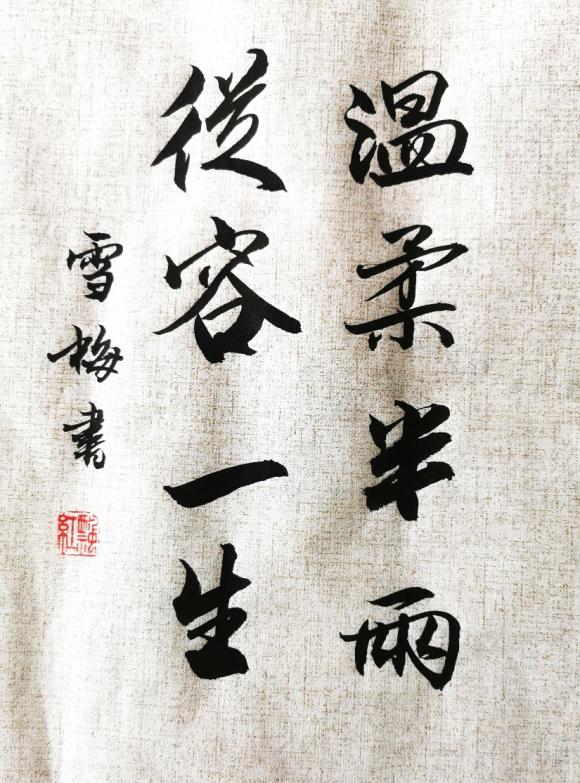 温柔半兩
從容一生
雪梅書